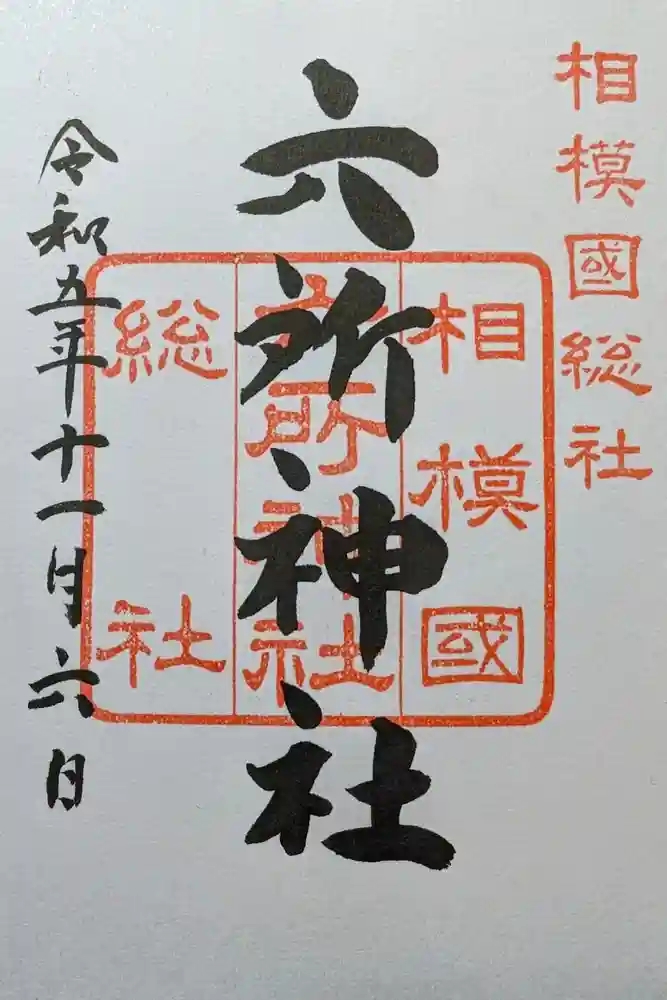 相模國総社
六所神社
相模國
六所神社
総社
令和五年十一月六日